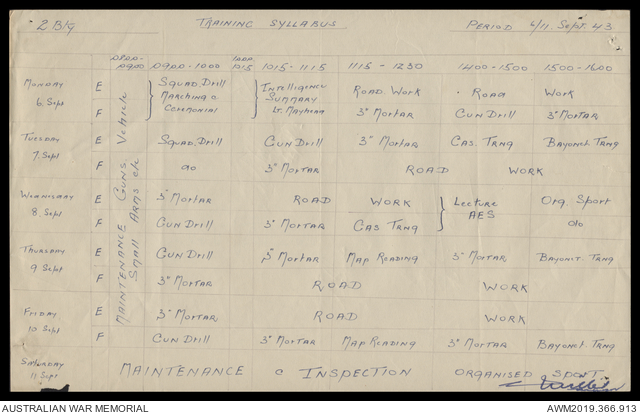 2 Btg TRAINING SYLLABUS PERIOD 6/11. Sept. 43
0900-1000 1000-1015 1015-1115 1115-1230 1400-1500 1500-1600
MONDAY 6 Sept E Squad Drill Marching & Ceremonial Intelligence Summary Lt. Mayhew Road Work Road Work
F 3" Mortar Gun Drill 3" Mortar
Maintenance Guns Vehicle Small Arms etc
TUESDAY 7 Sept E Squad Drill Gun Drill 3" Mortar Gas Trng Bayonet Trng
F do 3" Mortar ROAD WORK
WEDNESDAY 8 Sept E 3" Mortar ROAD WORK Lecture AES Org. Sport
F Gun Drill 3" Mortar GAS TRNG do
THURSDAY 9 Sept E Gun Drill 3" Mortar Map Reading 3" Mortar Bayonet Trng
F 3" Mortar ROAD WORK
FRIDAY 10 Sept E 3" Mortar ROAD WORK
F Gun Drill 3" Mortar Map Reading 3" Mortar Bayonet Trng
SATURDAY 11 Sept MAINTENANCE & INSPECTION ORGANISED SPORT
AUSTRALIAN WAR MEMORIAL AWM2019.366.913